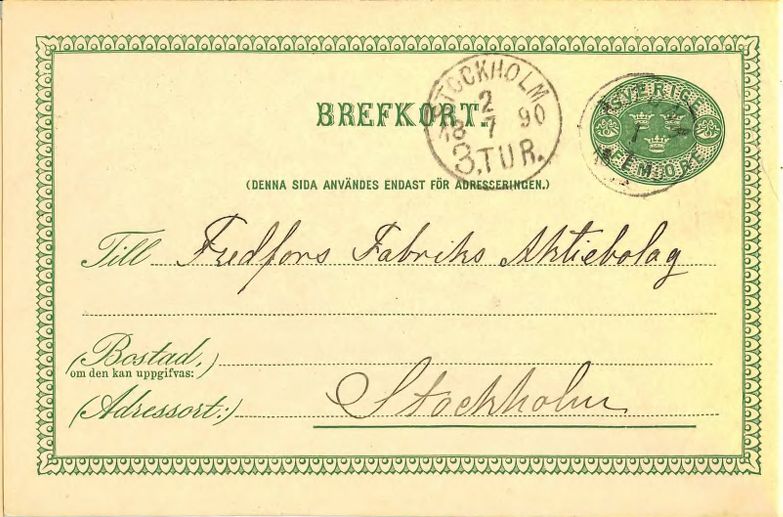 STOCKHOLM
2
18 7 90
3.TUR.
BREFKORT.
SVERIGE
FEM ÖRE
(DENNA SIDA ANVÄNDES ENDAST FÖR ADRESSERINGEN.)
Till Fredfors Fabriks Aktiebolag
(Bostad,)
om den kan uppgifvas:
(Adressort:) Stockholm